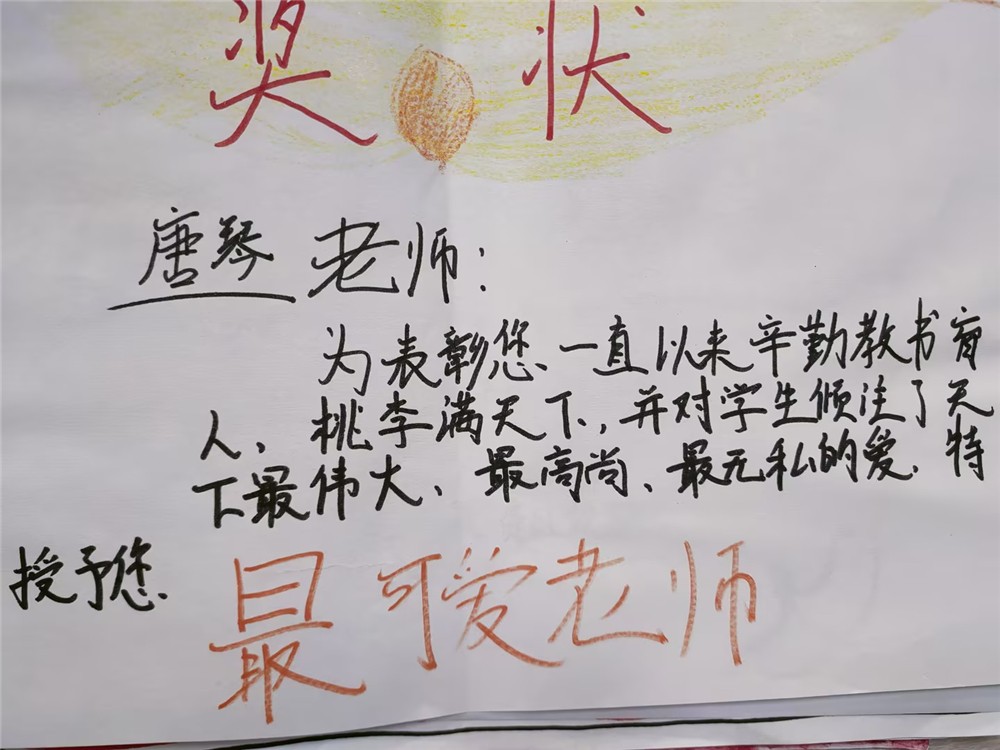 奖状
唐琴老师：
为表彰您一直以来辛勤教书育
人、桃李满天下，并对学生倾注了天
下最伟大、最高尚、最无私的爱．特
授予您 最可爱老师